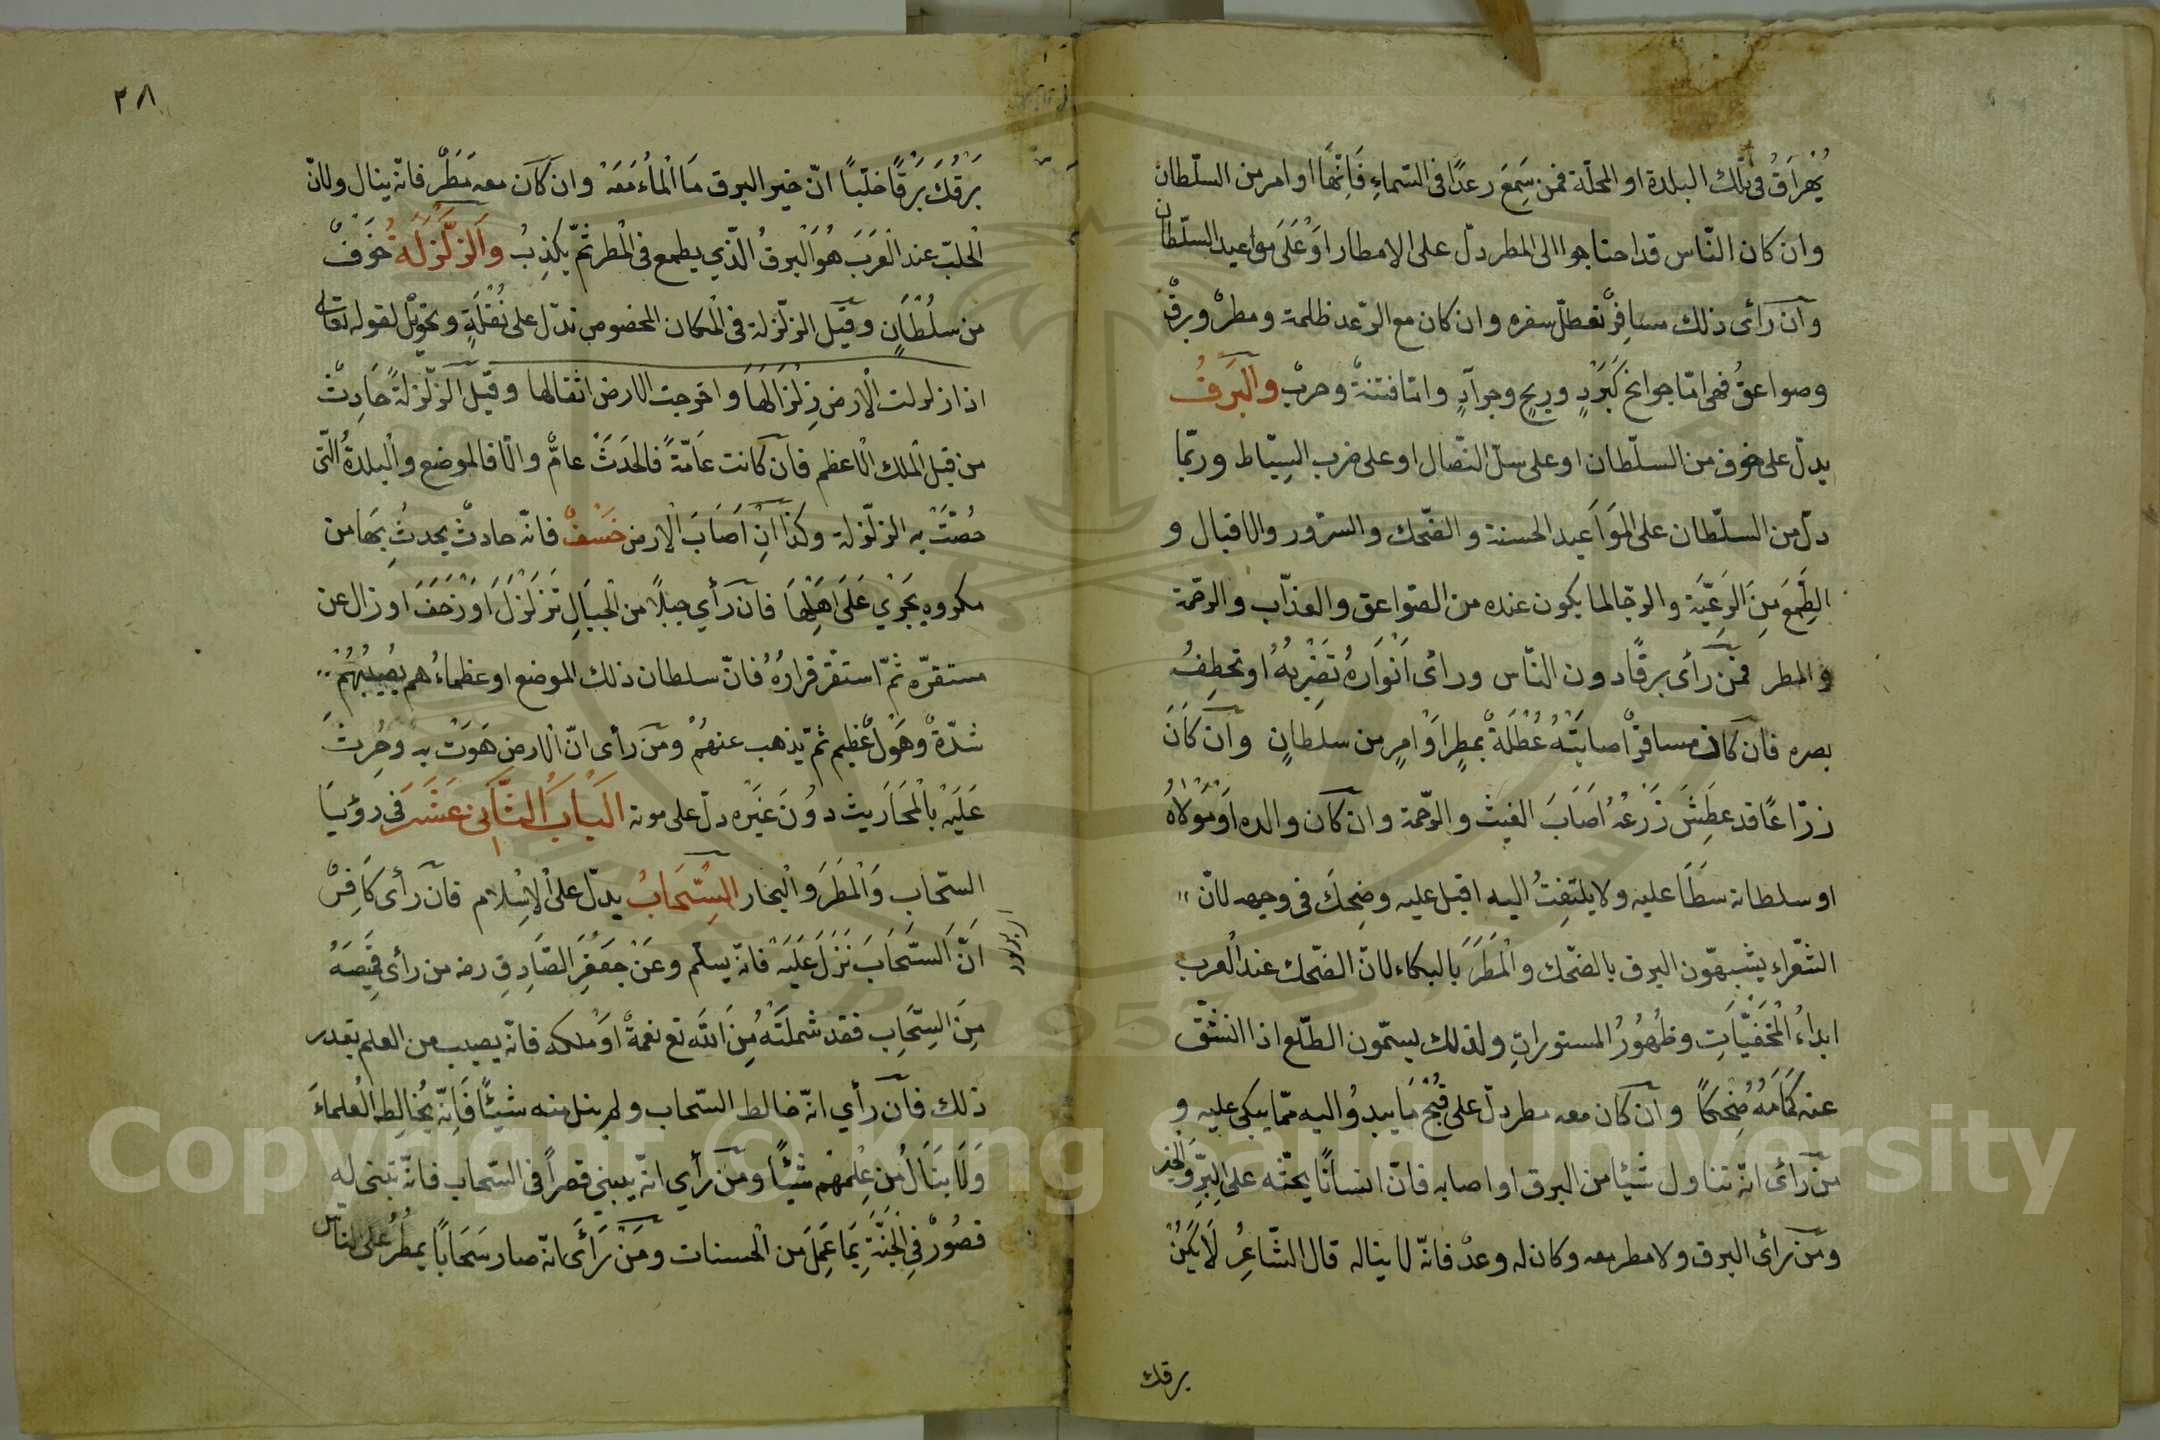 يُهراقُ فى تلك البلدة او المحلّة فمن سَمِعَ رعدًا فى السّماءِ فَانّها اوامر من السّلطان
وان كان النّاس قد احتاجوا الى المطر دلّ على الامطار اَوْ عَلَى مواعيد السّلطان
وان رأى ذلك مسافِرْ تعطلّ سفره وان كان مع الرّعد ظلمة ومطرْ وبرقْ
وصواعقُ فهى امّا جوائح كَبَرَدٍ وريحٍ وجرآدٍ وامّا فتنةْ وحربْ والبَرقُ
يدلّ على خوف من السلّطان او على سلّ النّصال او على ضرب السِيّاط وربّما
دلّ من السلّطان على المَوَاعيد الحسنة والضّحك والسرّور والاقبال و
الطّمَع مِنَ الرَعِيّة والرجّا لما يكون عنده من الصّواعق والعذّاب والرحّمة
والمطر فمَن رَأى برقًا دون النّاس ورأى اَنْوَارهُ تَضْرِبهُ او تخطِفُ
بصره فان كان مسافرْ اصابَتْهُ عُطْلَةْ بمطرٍ اَوْ امرٍ من سلطانٍ وان كَانَ
زرّاعًا قد عطِشَ زَرْعُهُ اَصَابَ الغيث والرّحمة وان كان والده اَوْ مَوْلاهُ
او سلطانه سَطَا عليه ولا يلتَفِتُ اليه اقبل عليه وضحِكَ فى وجهه لانّ
الشّعراء يشبهّون البرق بالضّحك والمَطَرَ بالبكاء لانّ الضّحك عند العرب
ابداءُ المَخْفَيّاتِ وظُهُورُ المستوراتِ ولذلك يسمّون الطّلع اذا انشقّ
عنه كمَامَهُ ضُحكًا وان كان معه مطر دلّ على قُبْح مَا يبدُو اليه ممّا يبكى عليه و
من رَأى انّه تناول شَيْئا من البرق او اصابه فانّ انسانًا يحثّه على البِرّ وَالخير
ومَن رأى البرق ولا مطر معه وكان له وعدْ فانّه لا يناله قال الشّاعِرُ لَا يَكُنْ
برقك
٢٨
بَرْقُكَ بَرْقًا خلّبًا انّ خير البرق مَا المْاءُ مَعَهْ وان كان معه مَطَرْ فانّه ينال ولانّ
الخلّب عند العَرَبَ هُوَ البرقُ الّذي يطمع فى المْطر ثمّ يكذِبُ والزلّزَلَةُ خَوَفْ
من سلُطْاَنٍ وقيل الزلزّلة فى المكان المخصوص تدلّ على نُقْلَةٍ وتحوّل لقوله تعالى
اذا زلزلت الارض زِلزَالَهَا واخرجت الارض اثقالها وقيل الزلزّلةُ حَادِثْ
من قبل المْلك الاعظم فان كانت عَامّةً فالحَدَثْ عامّْ والّا فالموضع والْبلدةُ الّتى
خُصّتَْ به الزلزّلة وكذا ان اَصَابَ الارض خَسْفْ فانّه حادثْ يحدثُ بهَا من
مكروهٍ يَجْرْي عَلَى اَهْلِهَا فان رَأى جبلًا من الجبَالِ تَزَلزَلَ اَوْزَحَفَ او زال عن
مستقرّه ثمّ استقرّ قرارُهُ فانّ سلطان ذلك الموضع او عظماءُ هم يصيبُهُمْ
شدّةْ وهَوْلْ عظيم ثمّ يذهب عنهمُْ ومَن رأى انّ الارض هَوَتْ به وحُرثَ
عَلَيَهْ بالْمَحَاريث دوُنَ غَيْره دلّ على موته البَابُ الثّانى عَشَرَ فى رؤيَا
السّحاب وَالْمَطَرَ والْبخار السِّحَابُ يدلّ على الْاِسْلام فان رأى كَافِرْ
اَنّ السَّحَابَ نَزَلَ عَلَيَهْ فانّه يسلّم وعَنْ جَعْفَر الصَّادِقِ رضه من رأى قمِيصَهُ
مِنَ السِحّاب فقد شملَتْهُ مِنَ اللّه تع نعمةْ اَوْ ملكه فانّه يصيب من العلم بقدر
ذلك فان رأي انّه خالط السّحاب ولم ينل منه شيئًا فَانّه يُخَالِط العُلماءَ
وَلَا ينَالُ مُن عِلْمِهْم شيئًا ومَن رأي انّه يبنى قصراً فى السّحاب فانّه تبنى له
قصُوُرْ فى الْجَنّةَِ بمَا عَمِلَ من الْحسنات ومَنْ رَأَى انّه صار سَحَابًا يمطرُ على النّاس